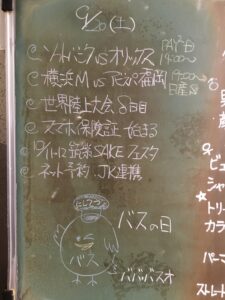 9/20(土)
◎ソフトバンク vs オリックス PayPay 14:00〜
◎横浜M vs アビスパ福岡 19:00〜 日産S
◎世界陸上大会 8日目
◎スマホ保険証 始まる
◎10/11-12 筑紫SAKEフェスタ
◎ネット予約 JK連携
バスの日
バス
バババスオ
ビュ
シャ
★トリー
カラ
パーマ
ストレート